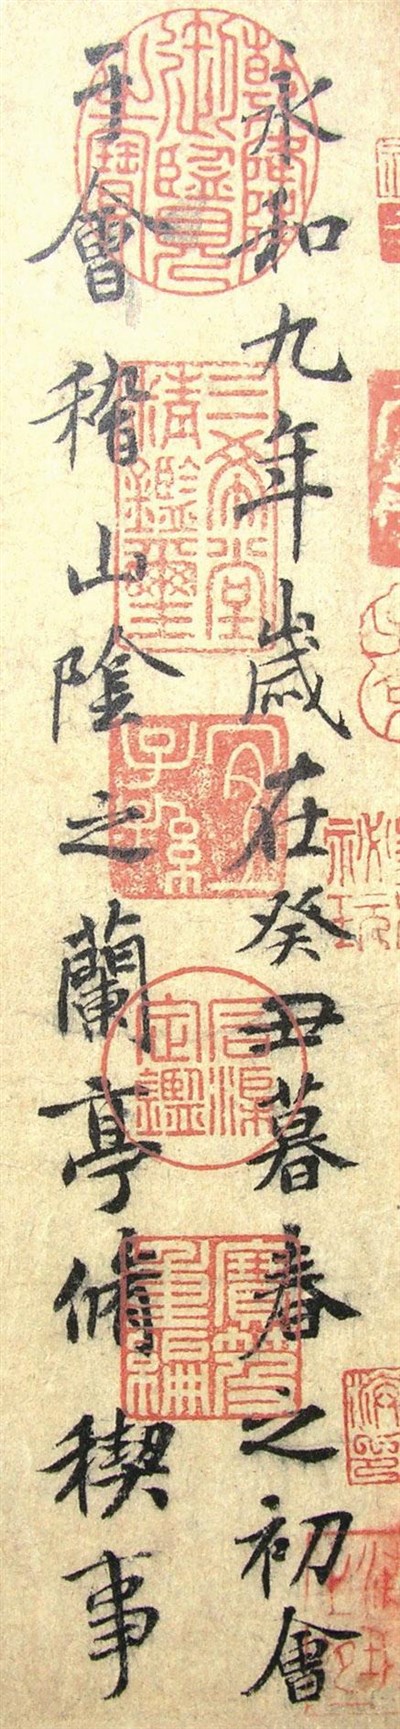 永和九年歲在癸丑暮春之初會
于會稽山陰之蘭亭脩稧事
乾隆御覽之寶
三希堂精鑑璽
宜子孫
石渠定鑑
寶笈重編